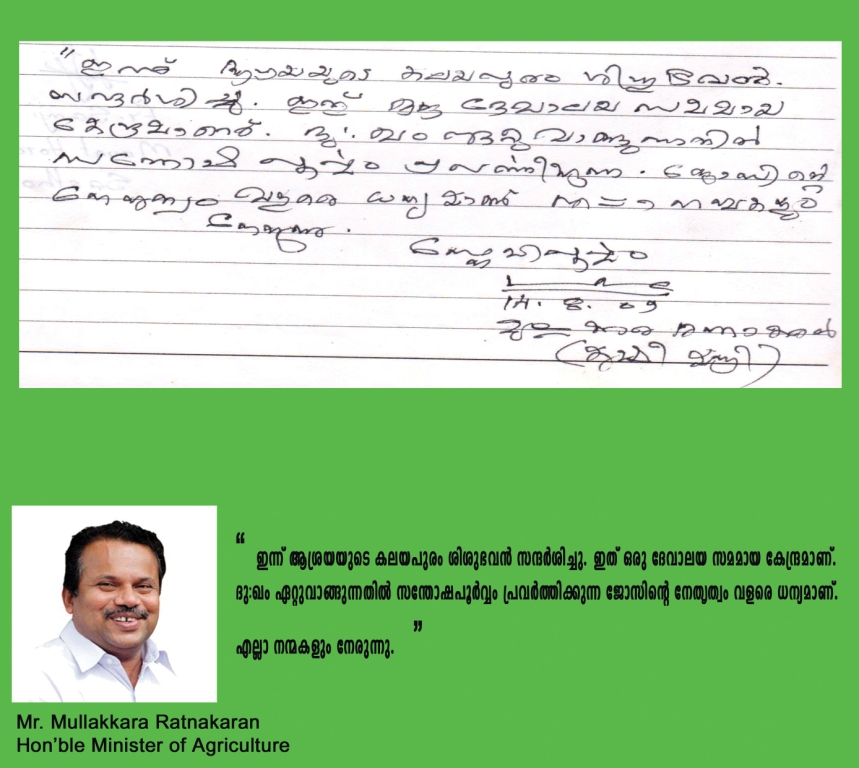 "ഇന്ന് ആശ്രയയുടെ കലയപുരം ശിശുഭവൻ
സന്ദർശിച്ചു. ഇത് ഒരു ദേവാലയ സമമായ
കേന്ദ്രമാണ്. ദു:ഖം ഏറ്റുവാങ്ങുന്നതിൽ
സന്തോഷപൂർവ്വം പ്രവർത്തിക്കുന്ന ജോസിന്റെ
നേതൃത്വം വളരെ ധന്യമാണ് നന്മകളും
നേരുന്നു.
സ്നേഹപൂർവ്വം
14.8.09
“ ഇന്ന് ആശ്രയയുടെ കലയപുരം ശിശുഭവൻ സന്ദർശിച്ചു. ഇത് ഒരു ദേവാലയ സമമായ കേന്ദ്രമാണ്.
ദു:ഖം ഏറ്റുവാങ്ങുന്നതിൽ സന്തോഷപൂർവ്വം പ്രവർത്തിക്കുന്ന ജോസിന്റെ നേതൃത്വം വളരെ ധന്യമാണ്.
എല്ലാ നന്മകളും നേരുന്നു. ”
Mr. Mullakkara Ratnakaran
Hon'ble Minister of Agriculture